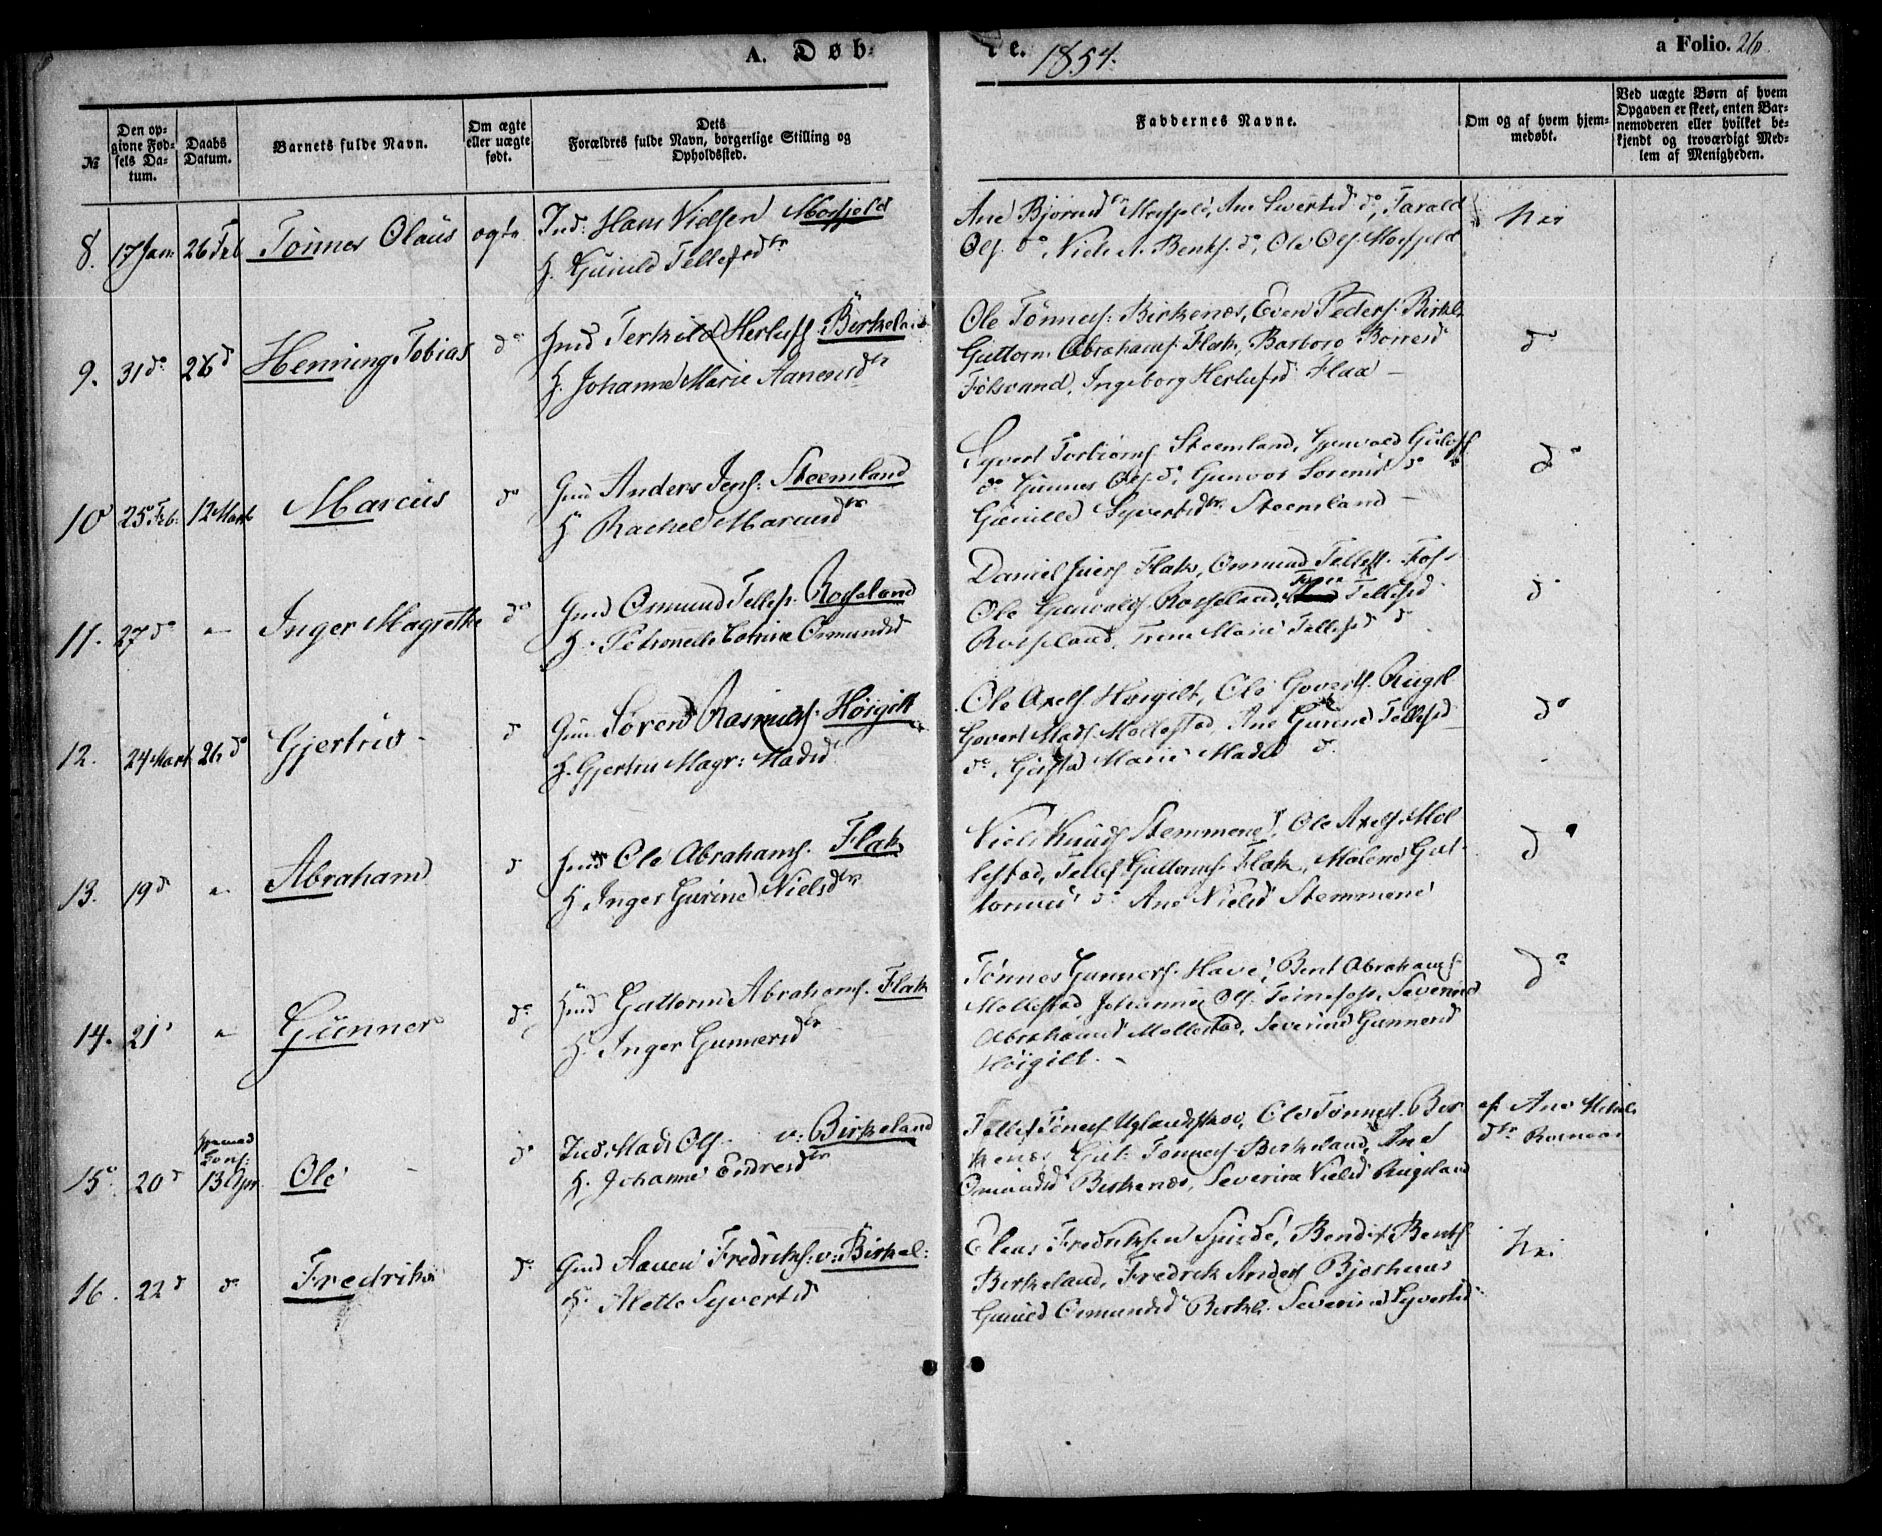 A. Døb-
te. 1854.
a Folio. 26.
№
Den op-
givne Fød-
sels Da-
tum.
Daabs
Datum.
Barnets fulde Navn.
Om ægte
eller uægte
født.
Dets
Forældres fulde Navn, borgerlige Stilling og
Opholdssted.
Faddernes Navne.
Om og af hvem hjem-
medøbt.
Ved uægte Børn af hvem
Opgaven er skeet, enten Bar-
nemoderen eller hvilket be-
kjendt og troværdigt Med-
lem af Menigheden.
8. 17 Jan 26 Feb Tönnes Olaüs ægte Ind: Hans Nielsen Mosfjeld
H. Günild Tellefsdtr
Ane Bjørnsd Mosfjeld, Ane Sivertsd do, Tarald
Ols. do, Niels A. Bents. do, Ole Ols. Mosfjeld
Nei
9. 31 do 26 d Henning Tobias do Gmd Terkild Herlufs. Birkeland
H. Johanne Marie Aanensdtr
Ole Tønnes: Birkenæs, Even Peders. Birkl.
Guttorm Abrahams. Flak, Barbro Børresd
Følsvand, Ingeborg Herlufsd Flaa –
do
10 25 Feb: 12 Marts Marcüs do Gmd Anders Jens: Steemland
H. Rachel Marcusdtr
Syvert Torbiørns. Steemland,
do Günnes Ols. do, Gunvor Sørensd do
Günild Syvertsdtr. Steemland –
do
11. 27 do – Inger Magrethe do Gmd Osmund Tellefs. Rosseland
H. Petronelle Osmundsd
Daniel Flak, Osmund Tellefs. Fos-
Ole Gunvalds. Rosseland, Tellefsd
Rosseland, Marie Tellefsd d
d
12. 24 Mart 26 do Gjertrud d Gmd Søren Rasmuss. Høigilt
H. Gjertru Magr: Madsd
Ole Axels. Høigilt, Ole Goverts. Rugsl
Govert Mads. Mollestad, Ane Gunne Tellefsd
do, Marie Madsd do
do
13. 19 d – Abraham d Gmd Ole Abrahams. Flak
H. Inger Gurine Nielsdtr
Niels Knuds. Stemmene, Ole Axels. Mol
lestad, Tellef Guttorms. Flak, Malene Gut-
tormsd do Ane Nielsd Stemmene
do
14. 21 – Günner do Gmd Guttorm Abrahams. Flak
H. Inger Gunnersdtr
Tønnes Gunners. Have, Bent Abrahams
Mollestad Johannes Ols. Severine
Abrahamsd Mollestad, Severine Gunnersd
Høigilt. –
do
15 20 d 13 Apr. Ole do Ind. Mads Ols. v: Birkeland
H. Johanne Endresdtr
Tellef Tønnes. Uglandskov, Ole Tønnes. Bir
kenæs, Gut: Tønnes. Birkeland, Ane
Osmundsd Birkenæs, Severine Nielsd Rugsland
af Ane
dtr
16. 22 d do Fredrik do Gmd Aanen Fredriks: v: Birkel:
H. Alette Syvertsd
Fredriksen Bendix Bents.
Birkeland, Fredrik Anders. Bjorhuus
Gunild Osmundsd Birkl. Severine Syvertsd
Nei